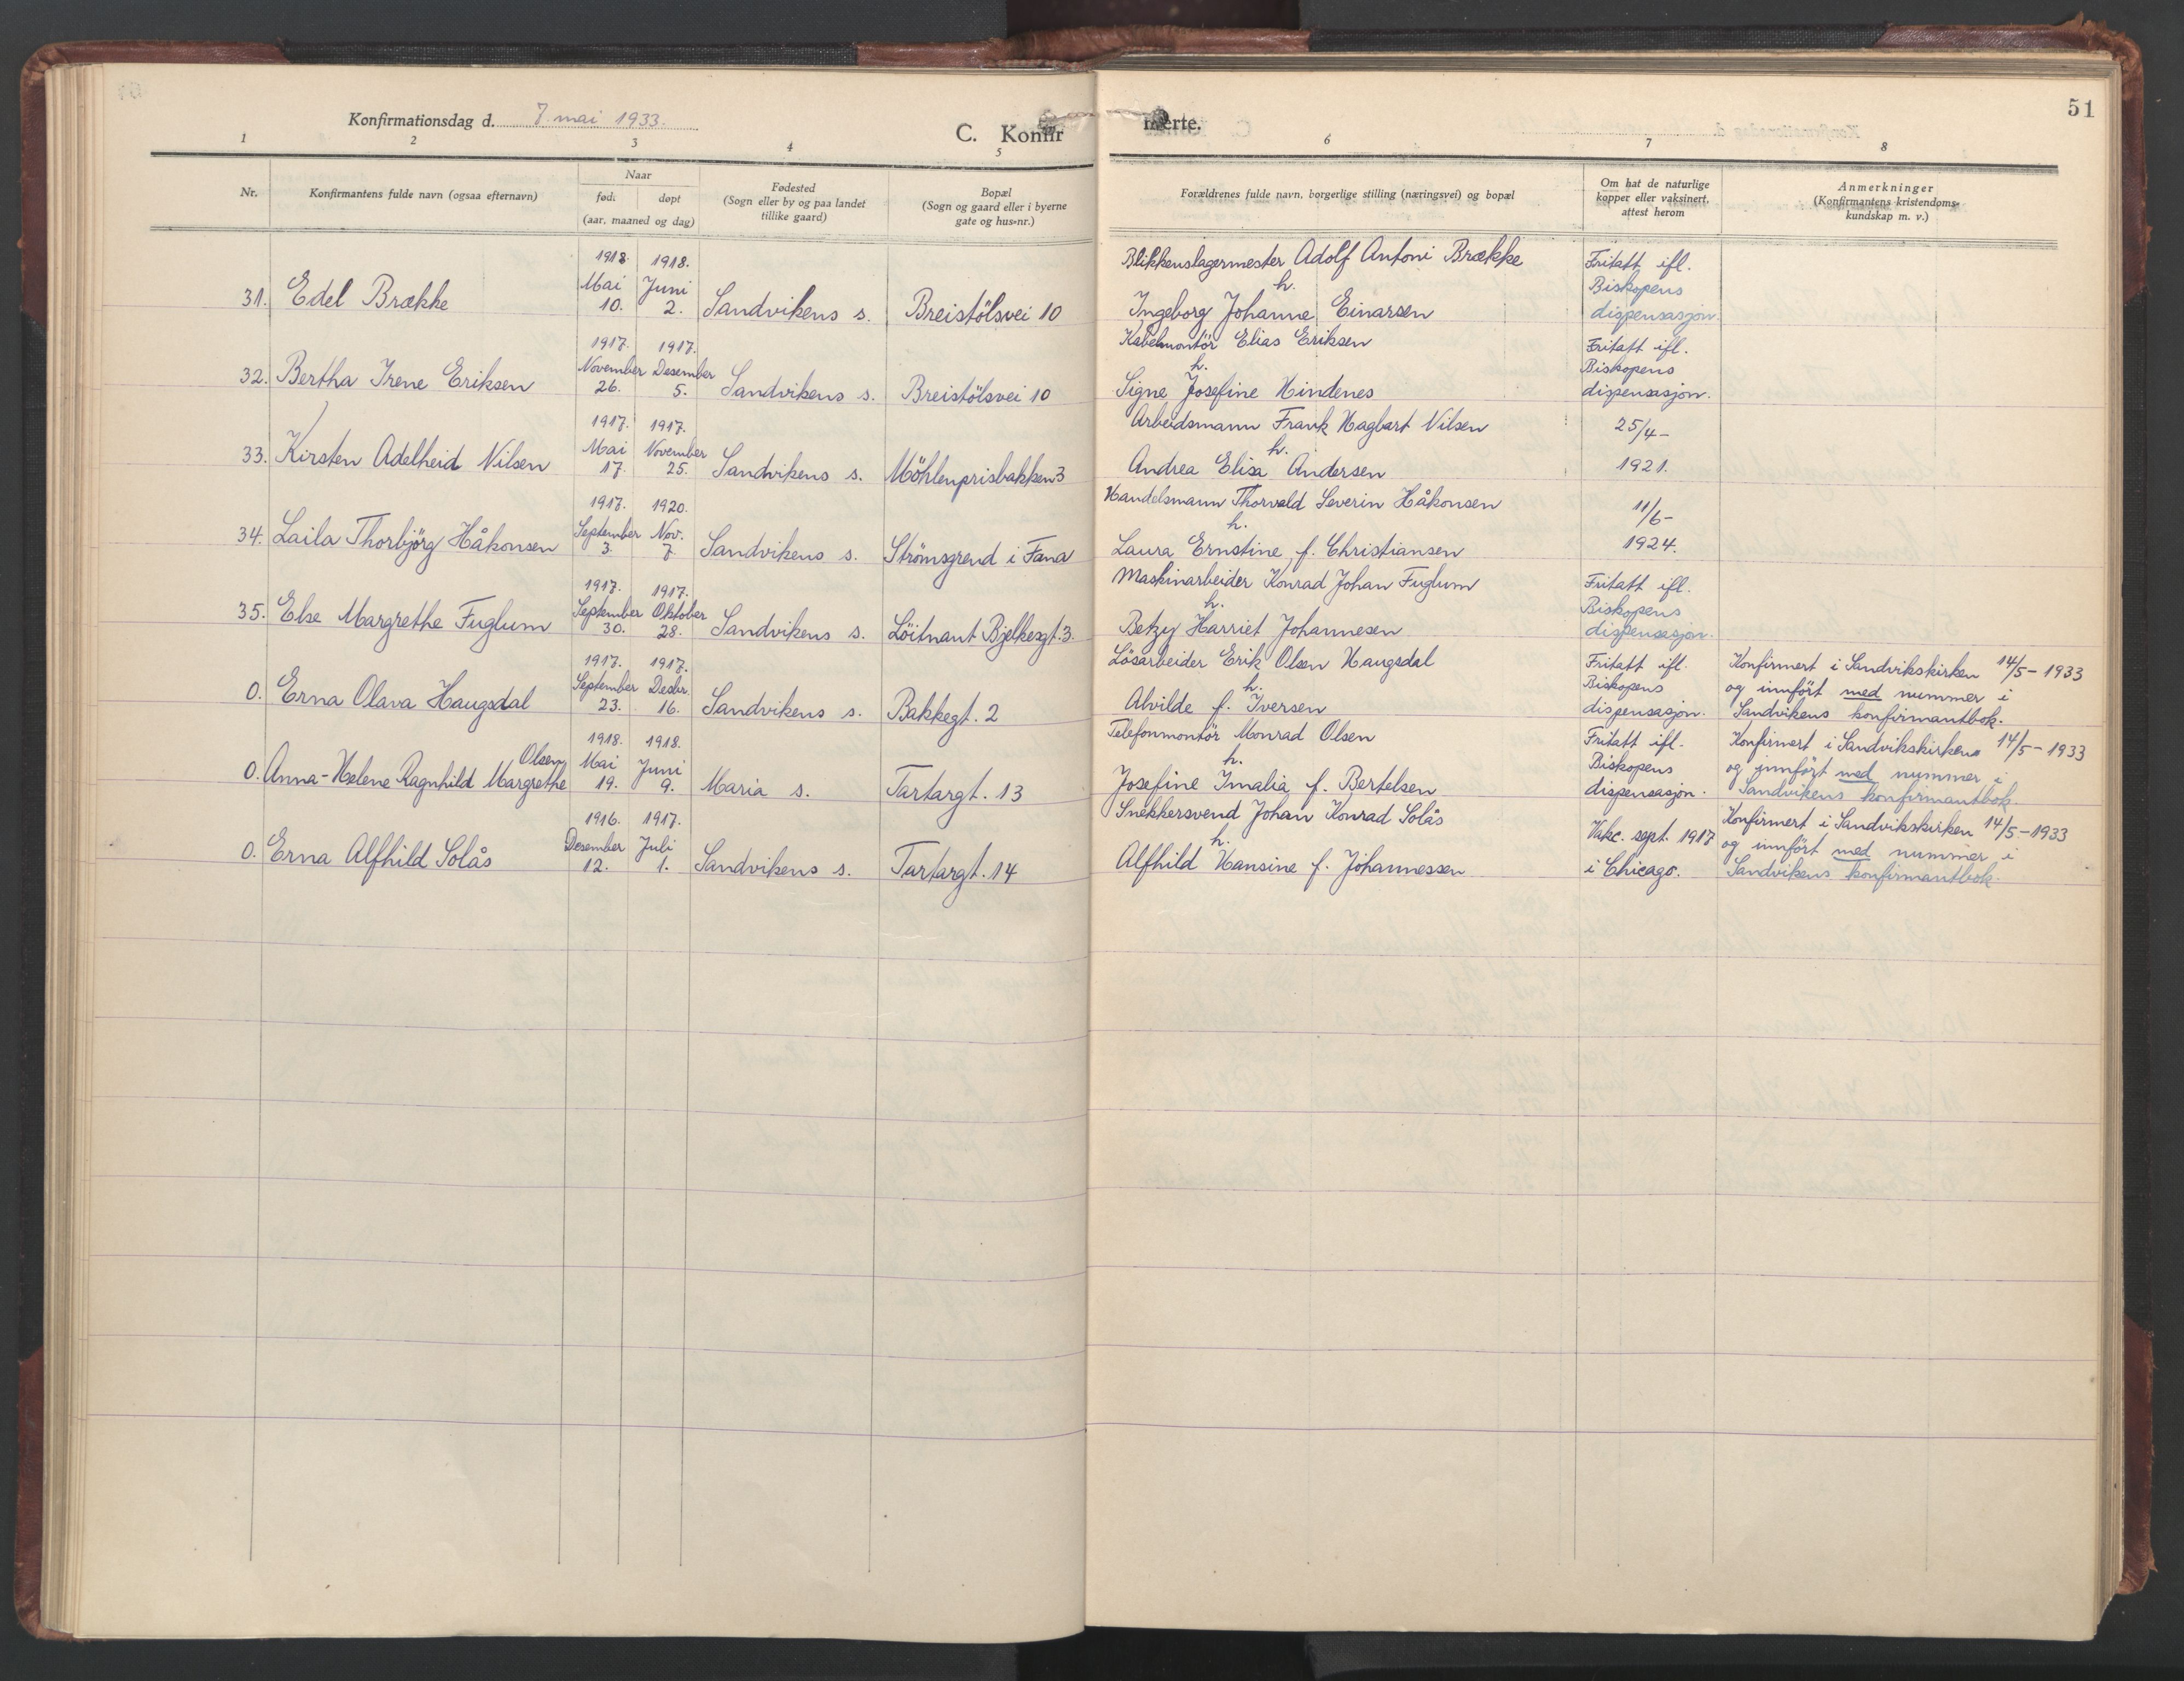 51
Konfirmationsdag d. 7. mai 1933.
C. Konfirmerte.
1 2 3 4 5 6 7 8
Nr.
Konfirmantens fulde navn (ogsaa efternavn)
Naar
fød. døpt
(aar, maaned og dag)
Fødested
(Sogn eller by og paa landet
tillike gaard)
Bopæl
(Sogn og gaard eller i byerne
gate og hus-nr.)
Forældrenes fulde navn, borgerlige stilling (næringsvei) og bopæl
Om hat de naturlige
kopper eller vaksinert,
attest herom
Anmerkninger
(Konfirmantens kristendoms-
kundskap m. v.)
1918. 1918. Blikkenslagermester Adolf Antoni Brække Fritatt ifl.
Mai Juni h. Biskopens
31. Edel Brække 10. 2. Sandvikens s. Breistölsvei 10 Ingeborg Johanne Einarsen dispensasjon.
1917. 1917. Kabelmontör Elias Eriksen Fritatt ifl.
November Desember h. Biskopens
32. Bertha Irene Eriksen 26. 5. Sandvikens s. Breistölsvei 10 Signe Josefine Hindenes dispensasjon.
1917. 1917. Arbeidsmann Frank Hagbart Nilsen 25/4-
Mai November h.
33. Kirsten Adelheid Nilsen 17. 25. Sandvikens s. Möhlenprisbakken 3 Andrea Elisa Andersen 1921.
1917. 1920. Handelsmann Thorvald Severin Håkonsen 11/6-
September Nov. h.
34. Laila Thorbjörg Håkonsen 3. 7. Sandvikens s. Strömsgrend i Fana Laura Ernstine f. Christiansen 1924.
1917. 1917. Maskinarbeider Konrad Johan Fuglum Fritatt ifl.
September Oktober h. Biskopens
35. Else Margrethe Fuglum 30. 28. Sandvikens s. Löitnant Bjelkesgt. 3 Betzy Harriet Johannesen dispensasjon.
1917. 1917. Lösarbeider Erik Olsen Haugsdal Fritatt ifl. Konfirmert i Sandvikskirken 14/5-1933
September Desbr. h. Biskopens og innfört med nummer i
0. Erna Olava Haugsdal 23. 16. Sandvikens s. Bakkegt. 2 Alvilde f. Iversen dispensasjon. Sandvikens konfirmantbok.
1918. 1918. Telefonmontör Monrad Olsen Fritatt ifl. Konfirmert i Sandvikskirken 14/5-1933
Olsen Mai Juni h. Biskopens og innfört med nummer i
0. Anna-Helene Ragnhild Margrethe 19. 9. Maria s. Tartargt. 13 Josefine Imalia f. Bertelsen dispensasjon. Sandvikens konfirmantbok.
1916. 1917. Snekkersvend Johan Konrad Solås Vakc. sept. 1917 Konfirmert i Sandvikskirken 14/5-1933
Desember Juli h. og innfört med nummer i
0. Erna Alfhild Solås 12. 1. Sandvikens s. Tartargt. 14 Alfhild Hansine f. Johannessen i Chicago. Sandvikens konfirmantbok.